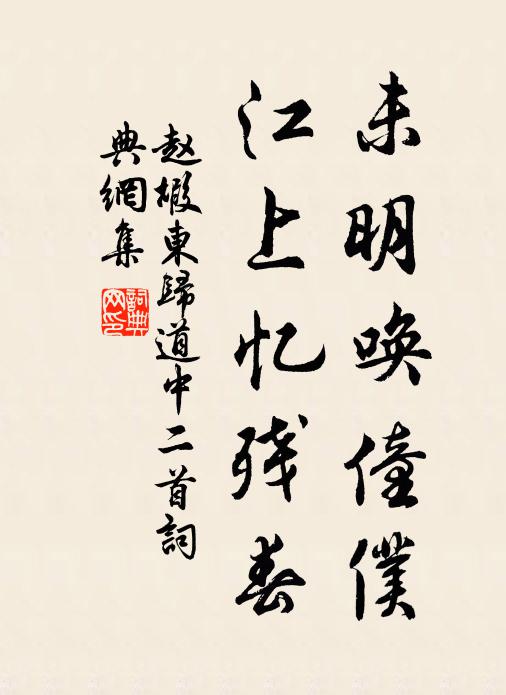 未明唤僮僕
江上忆残春
赵嘏東歸道中二首詞
典網集
詞典網印